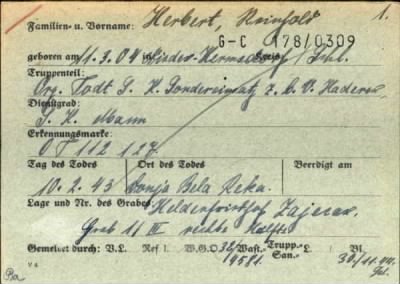 1.
Familien- u. Vorname: Herbert, Reinhold
G-C 178/0309
geboren am 11.3.04 in Nieder-Hermsdorf Kreis /Schl.
Truppenteil:
Org. Todt S. K. Sondereinsatz z. b. V.
Dienstgrad:
S. K. Mann
Erkennungsmarke:
OT 112 127
Tag des Todes Ort des Todes Beerdigt am
10.2.43 Donja Bela Reka.
Lage und Nr. des Grabes: Heldenfriedhof Zajecar
Grab 11 III rechte Hälfte
Gemeldet durch: V.L. Ref I. W.G.O. 32/ Wast.- Trupp.- San.- L. / Bl.
19581.
Ba